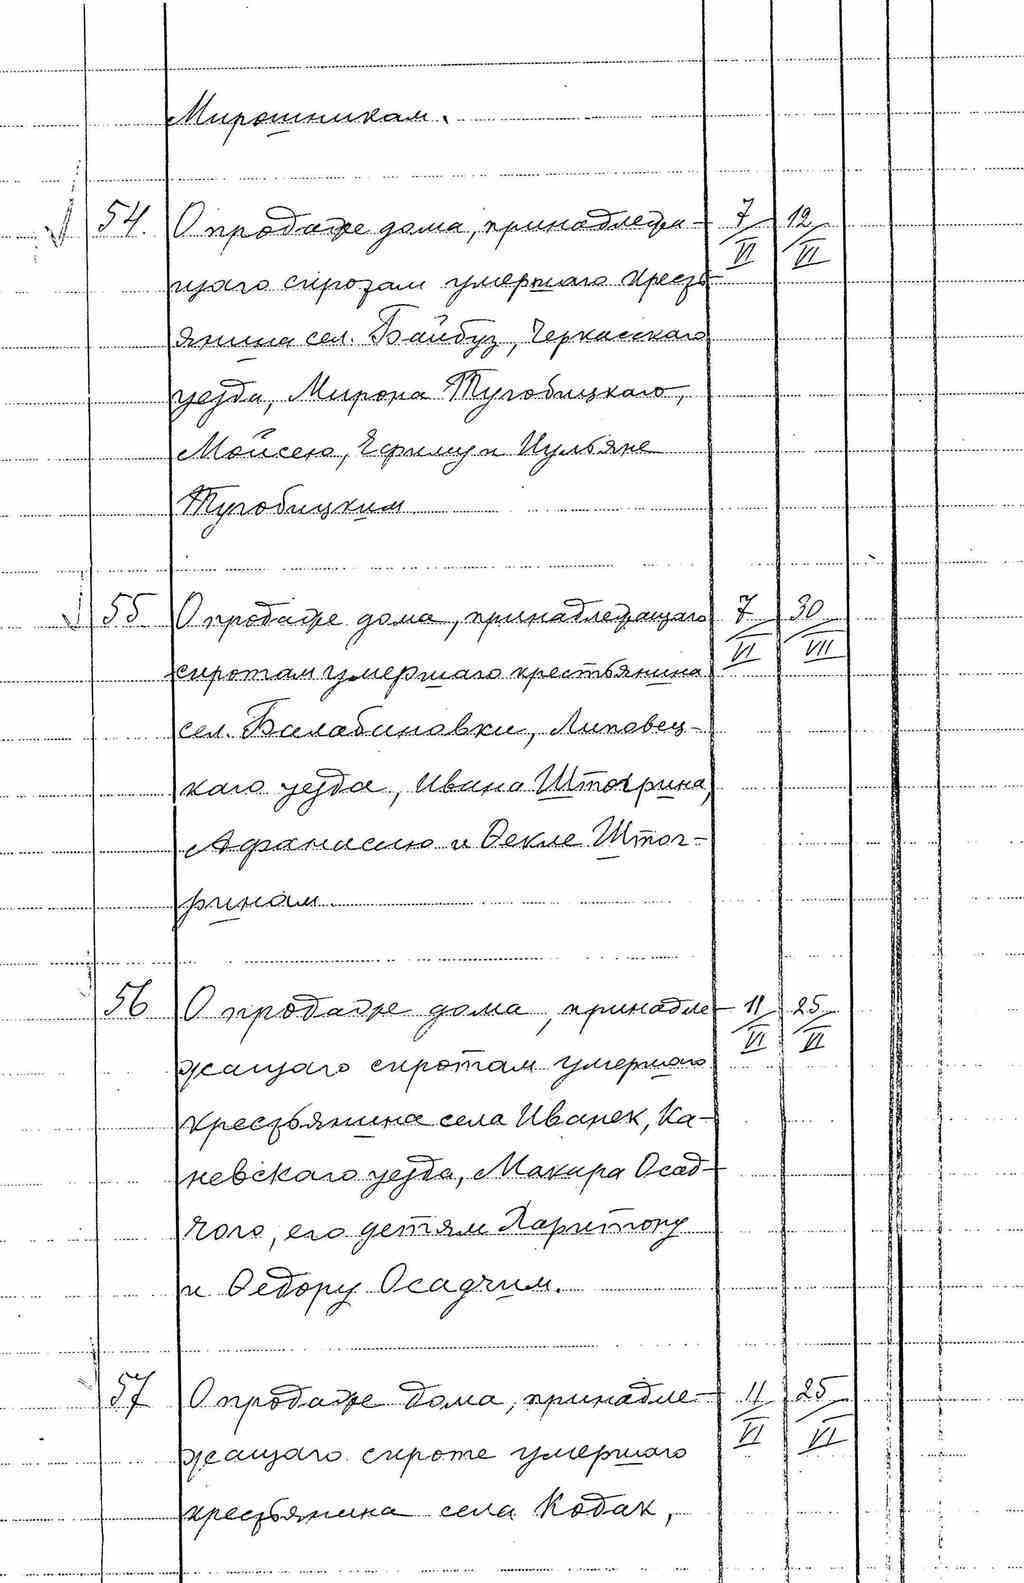 Мирошникам.
54. О продаже дома, принадлежа- 7/VI 12/VI
щаго сиротам умершаго кресть-
янина сел. Байбуз, Черкасскаго
уезда, Мирона Тугобицкаго,
Мойсею, Ефиму и Иульяне
Тугобицким
55 О продаже дома, принадлежащаго 7/VI 30/VII
сиротам умершаго крестьянина
сел. Балабановки, Липовец-
каго уезда, Ивана Штогрина,
Афанасию и Фекле Штог-
ринам.
56 О продаже дома, принадле- 11/VI 25/VI
жащаго сиротам умершаго
крестьянина села Иванек, Ка-
невскаго уезда, Макара Осад-
чого, его детям Харитону
и Федору Осадчим.
57 О продаже дома, принадле- 11/VI 25/VI
жащаго сироте умершаго
крестьянина села Кодак,